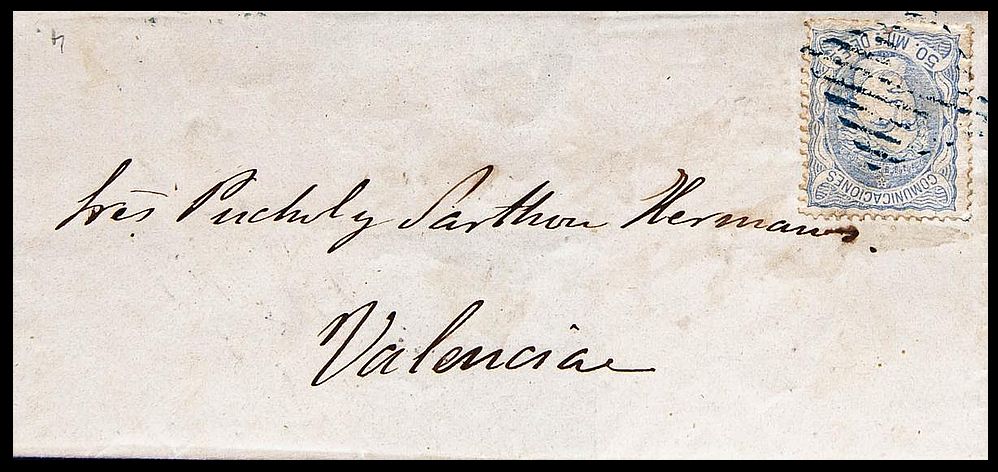 50. MILS DE E.
COMUNICACIONES
Sres Puchol y Sarthou Hermanos.
Valencia